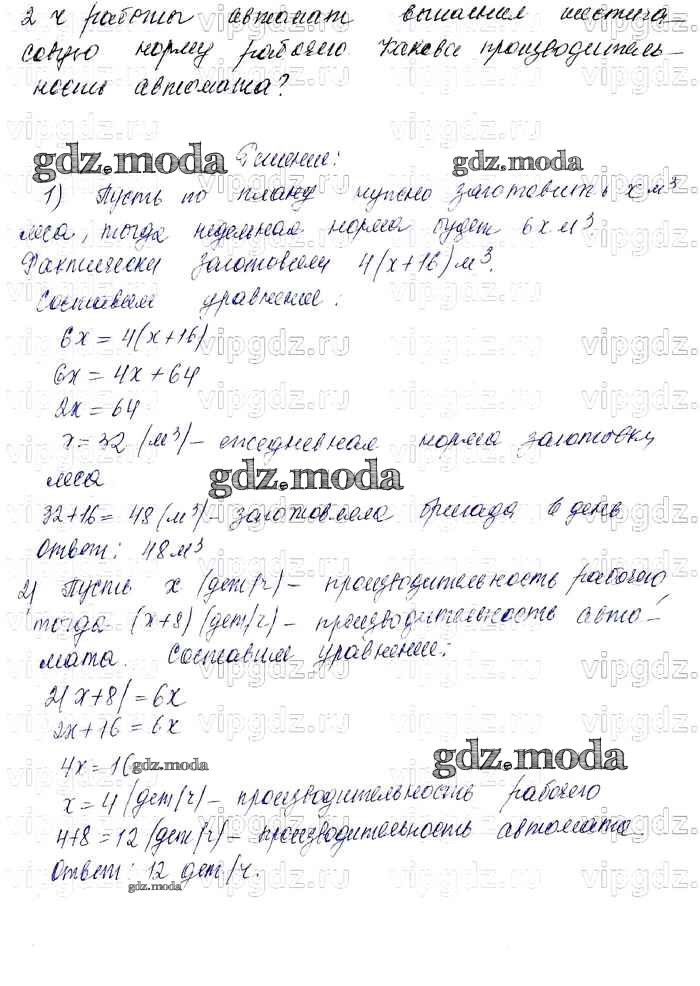 2 ч работы автомат выполнил шестича-
совую норму рабочего. Какова производитель-
ность автомата?
Решение:
1) Пусть по плану нужно заготовить x м³
леса, тогда недельная норма будет 6x м³.
Фактически заготовили 4(x+16) м³.
Составим уравнение:
6x = 4(x+16)
6x = 4x + 64
2x = 64
x = 32 (м³) – ежедневная норма заготовки
леса
32+16 = 48 (м³) – заготовляла бригада в день
Ответ: 48 м³
2) Пусть x (дет/ч) – производительность рабочего,
тогда (x+8) (дет/ч) – производительность авто-
мата. Составим уравнение:
2(x+8) = 6x
2x+16 = 6x
4x = 16
x = 4 (дет/ч) – производительность рабочего
4+8 = 12 (дет/ч) – производительность автомата.
Ответ: 12 дет/ч.
gdz.moda
vipgdz.ru